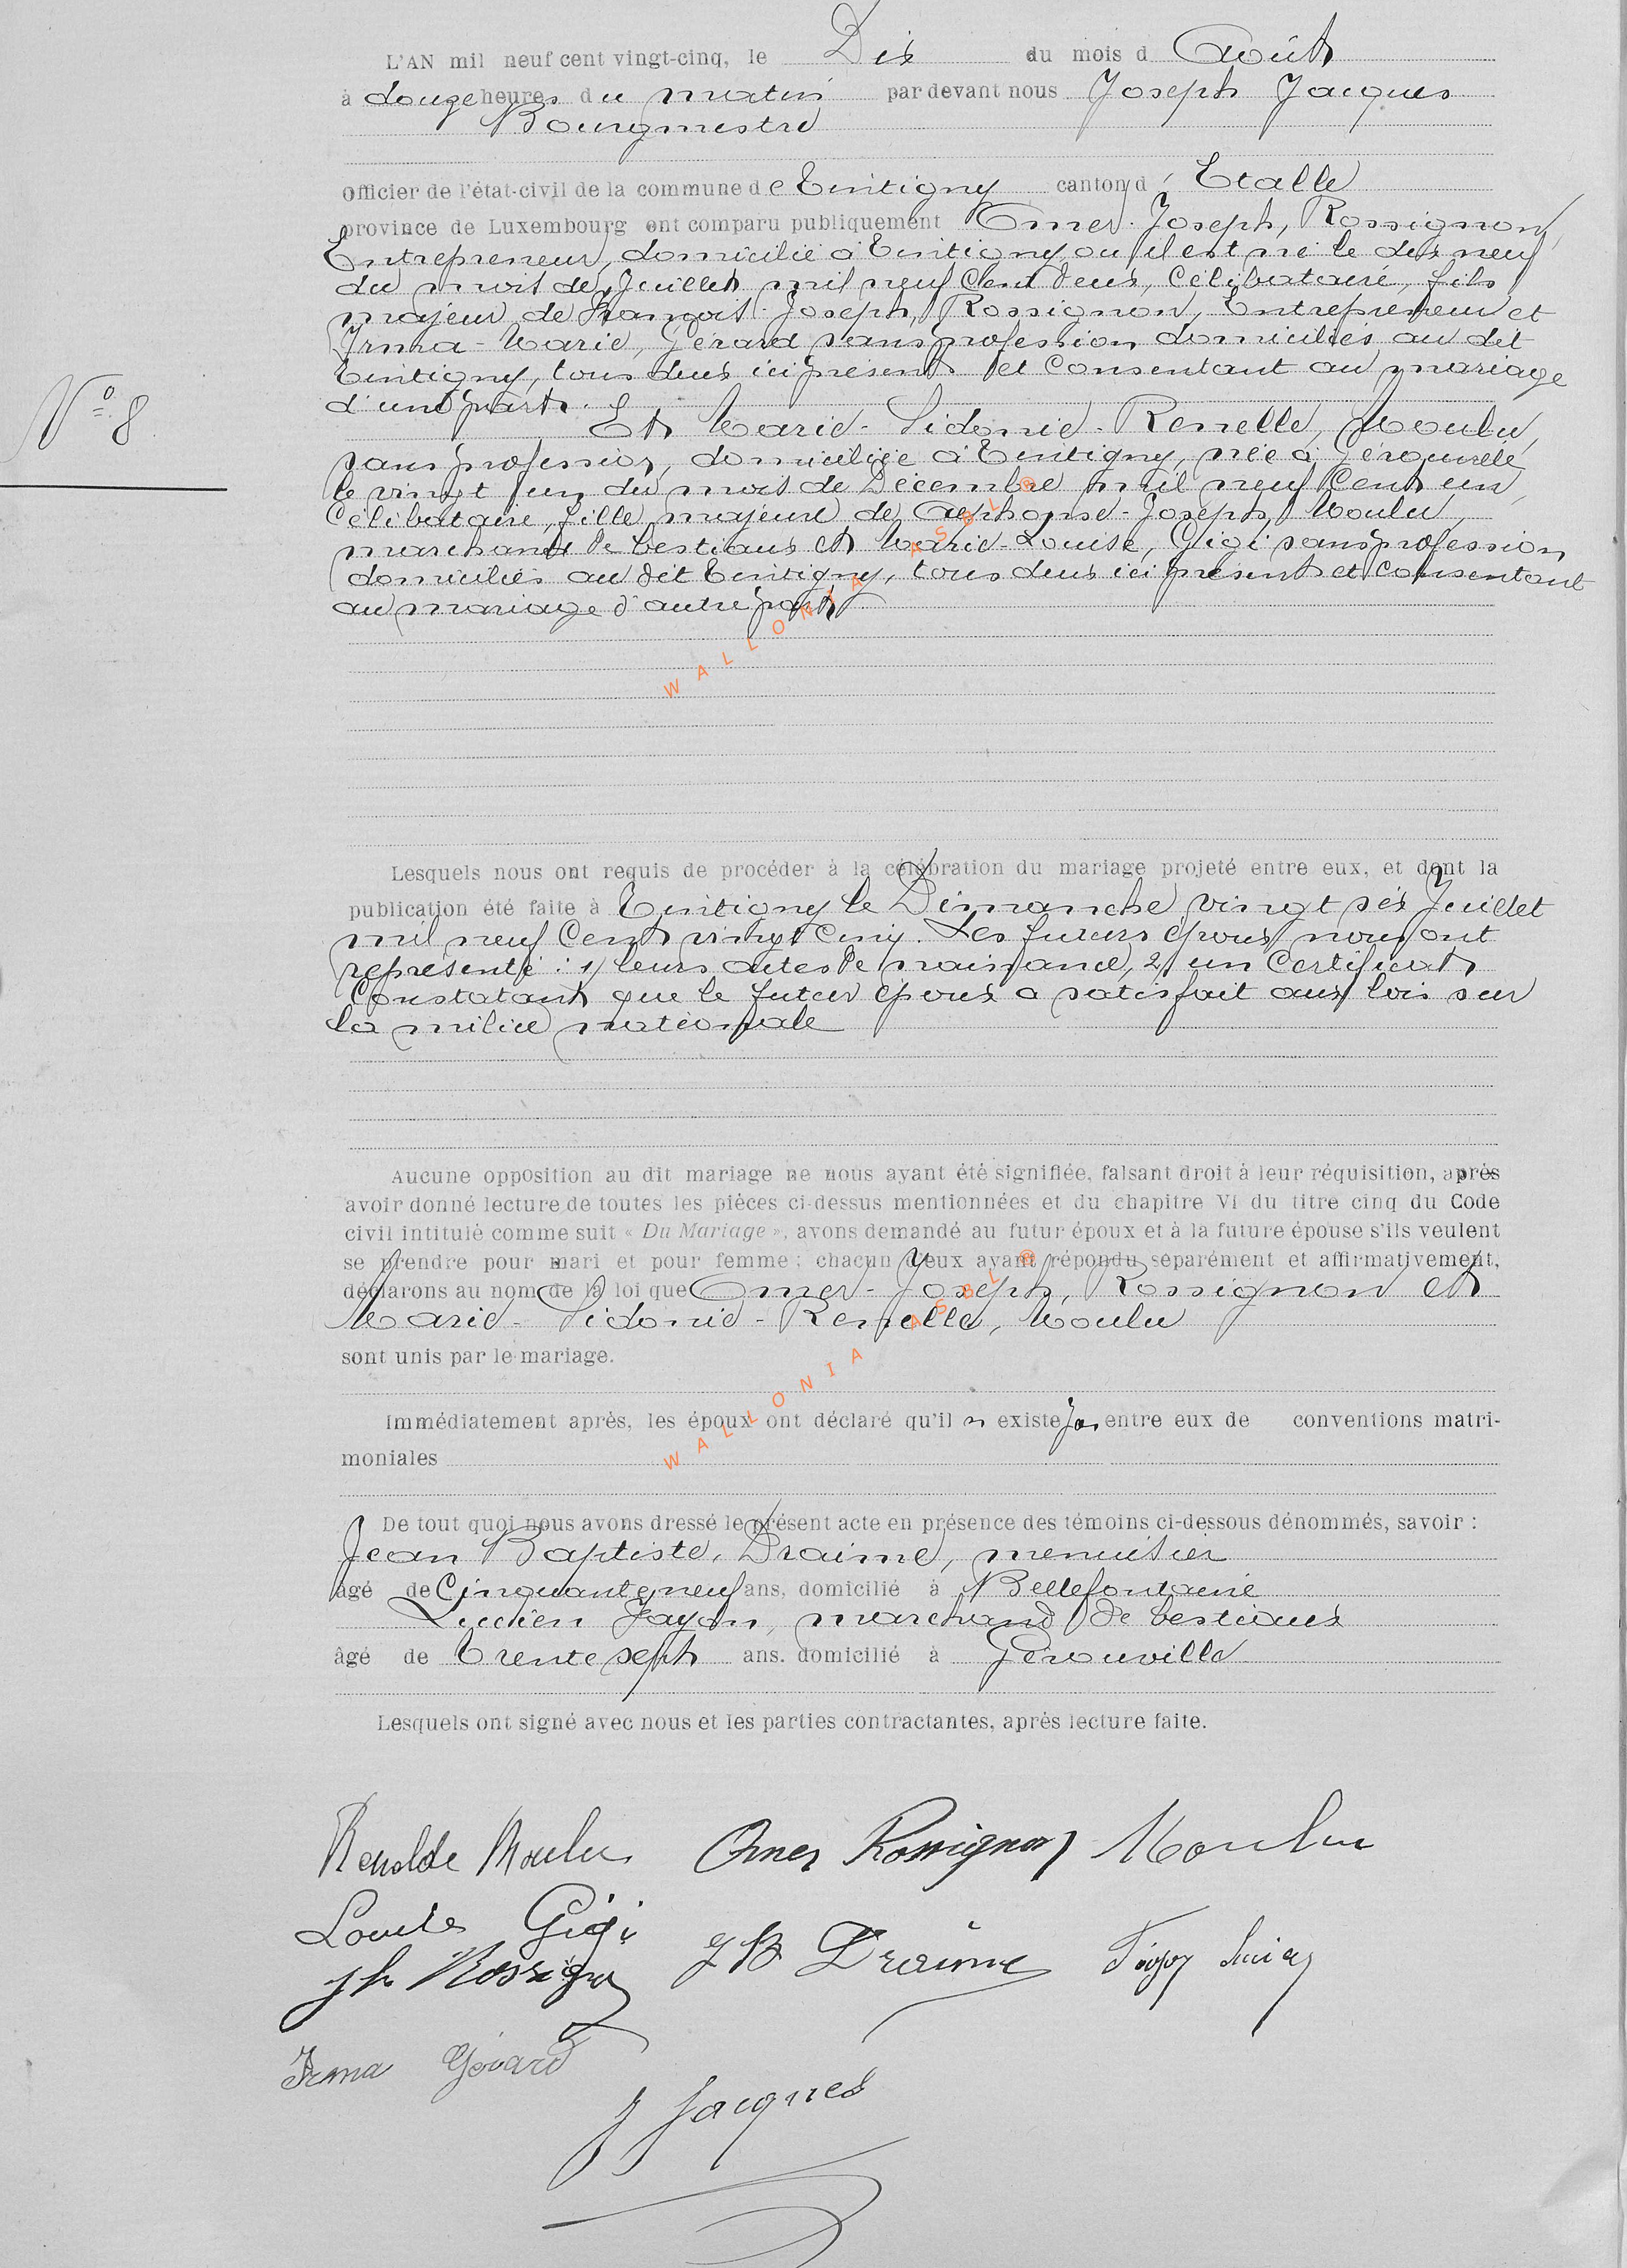 L'AN mil neuf cent vingt-cinq, le Dix du mois d Août
à douze heures du matin par devant nous Joseph Jacques
Bourgmestre
officier de l'état-civil de la commune de Tintigny canton d' Etalle
province de Luxembourg ont comparu publiquement Omer-Joseph, Rossignon,
Entrepreneur, domicilié à Tintigny où il est né le dix neuf
du mois de Juillet mil neuf Cent deux, Célibataire, fils
majeur de François-Joseph, Rossignon, Entrepreneur et
Irma-Marie, Gérard sans profession domiciliés au dit
Tintigny, tous deux ici présent et Consentant au mariage
d'une part.
N° 8
Et Marie-Sidonie-Renelle, Moulu,
sans profession, domiciliée à Tintigny, née à Gérouville
le vingt un du mois de Décembre mil neuf Cent un,
Célibataire, fille majeure de Alphonse-Joseph, Moulu,
marchand de bestiaux et Marie-Louise, Gigi sans profession
domiciliés au dit Tintigny, tous deux ici présent et Consentant
au mariage d'autre part
WALLONIA ASBL ®
Lesquels nous ont requis de procéder à la célébration du mariage projeté entre eux, et dont la
publication été faite à Tintigny le Dimanche vingt six Juillet
mil neuf Cent vingt Cinq. Les futurs époux nous ont
représenté : 1) leurs actes de naissance, 2) un Certificat
Constatant que le futur époux a satisfait aux lois sur
la milice nationale
Aucune opposition au dit mariage ne nous ayant été signifiée, faisant droit à leur réquisition, après
avoir donné lecture de toutes les pièces ci-dessus mentionnées et du chapitre VI du titre cinq du Code
civil intitulé comme suit « Du Mariage », avons demandé au futur époux et à la future épouse s'ils veulent
se prendre pour mari et pour femme ; chacun d'eux ayant répondu separément et affirmativement,
déclarons au nom de la loi que Omer-Joseph, Rossignon et
Marie-Sidonie-Renelle, Moulu
sont unis par le mariage.
WALLONIA ASBL ®
Immédiatement après, les époux ont déclaré qu'il n existe pas entre eux de conventions matri-
moniales
De tout quoi nous avons dressé le présent acte en présence des témoins ci-dessous dénommés, savoir :
Jean Baptiste, Draime, menuisier
âgé de Cinquante neuf ans, domicilié à Bellefontaine
Lucien marchand de bestiaux
âgé de trente sept ans. domicilié à Gérouville
Lesquels ont signé avec nous et les parties contractantes, après lecture faite.
Renelde Moulu Omer Rossignon Moulu
Louise Gigi
Jh Rossignon JB Draime
Irma Gérard
J Jacques